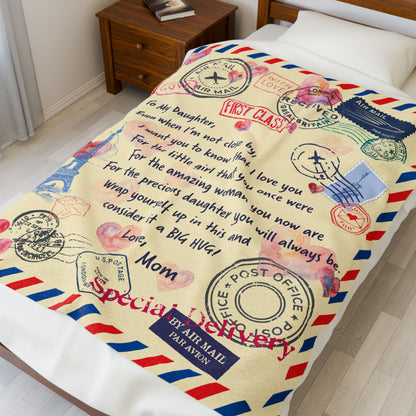 AIR MAIL
AIR MAIL
WITH LOVE
LONDON
RECEIVED
GREAT BRITAIN
AIR MAIL
FIRST CLASS
To My Daughter,
Even when I'm not close by,
I want you to know that I love you
For the little girl that you once were
For the amazing woman you now are
For the precious daughter you will always be.
Wrap yourself up in this and
consider it a BIG HUG!
Love,
Mom
U.S. POSTAGE
POST OFFICE
POST OFFICE
Special Delivery
BY AIR MAIL
PAR AVION